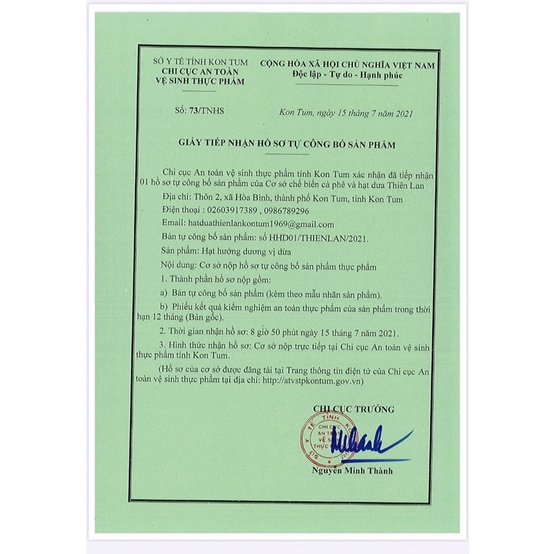 SỞ Y TẾ TỈNH KON TUM
CHI CỤC AN TOÀN
VỆ SINH THỰC PHẨM
CỘNG HÒA XÃ HỘI CHỦ NGHĨA VIỆT NAM
Độc lập - Tự do - Hạnh phúc
Số: 73/TNHS
Kon Tum, ngày 15 tháng 7 năm 2021
GIẤY TIẾP NHẬN HỒ SƠ TỰ CÔNG BỐ SẢN PHẨM
Chi cục An toàn vệ sinh thực phẩm tỉnh Kon Tum xác nhận đã tiếp nhận
01 hồ sơ tự công bố sản phẩm của Cơ sở chế biến cà phê và hạt dưa Thiên Lan
Địa chỉ: Thôn 2, xã Hòa Bình, thành phố Kon Tum, tỉnh Kon Tum
Điện thoại : 02603917389 , 0986789296
Email: hatduathienlankontum1969@gmail.com
Bản tự công bố sản phẩm: số HHD01/THIENLAN/2021.
Sản phẩm: Hạt hướng dương vị dừa
Nội dung: Cơ sở nộp hồ sơ tự công bố sản phẩm thực phẩm
1. Thành phần hồ sơ nộp gồm:
a) Bản tự công bố sản phẩm (kèm theo mẫu nhãn sản phẩm).
b) Phiếu kết quả kiểm nghiệm an toàn thực phẩm của sản phẩm trong thời
hạn 12 tháng (Bản gốc).
2. Thời gian nhận hồ sơ: 8 giờ 50 phút ngày 15 tháng 7 năm 2021.
3. Hình thức nhận hồ sơ: Cơ sở nộp trực tiếp tại Chi cục An toàn vệ sinh
thực phẩm tỉnh Kon Tum.
(Hồ sơ của cơ sở được đăng tải tại Trang thông tin điện tử của Chi cục An
toàn vệ sinh thực phẩm tại địa chỉ: http://atvstpkontum.gov.vn)
CHI CỤC TRƯỞNG
Nguyễn Minh Thành